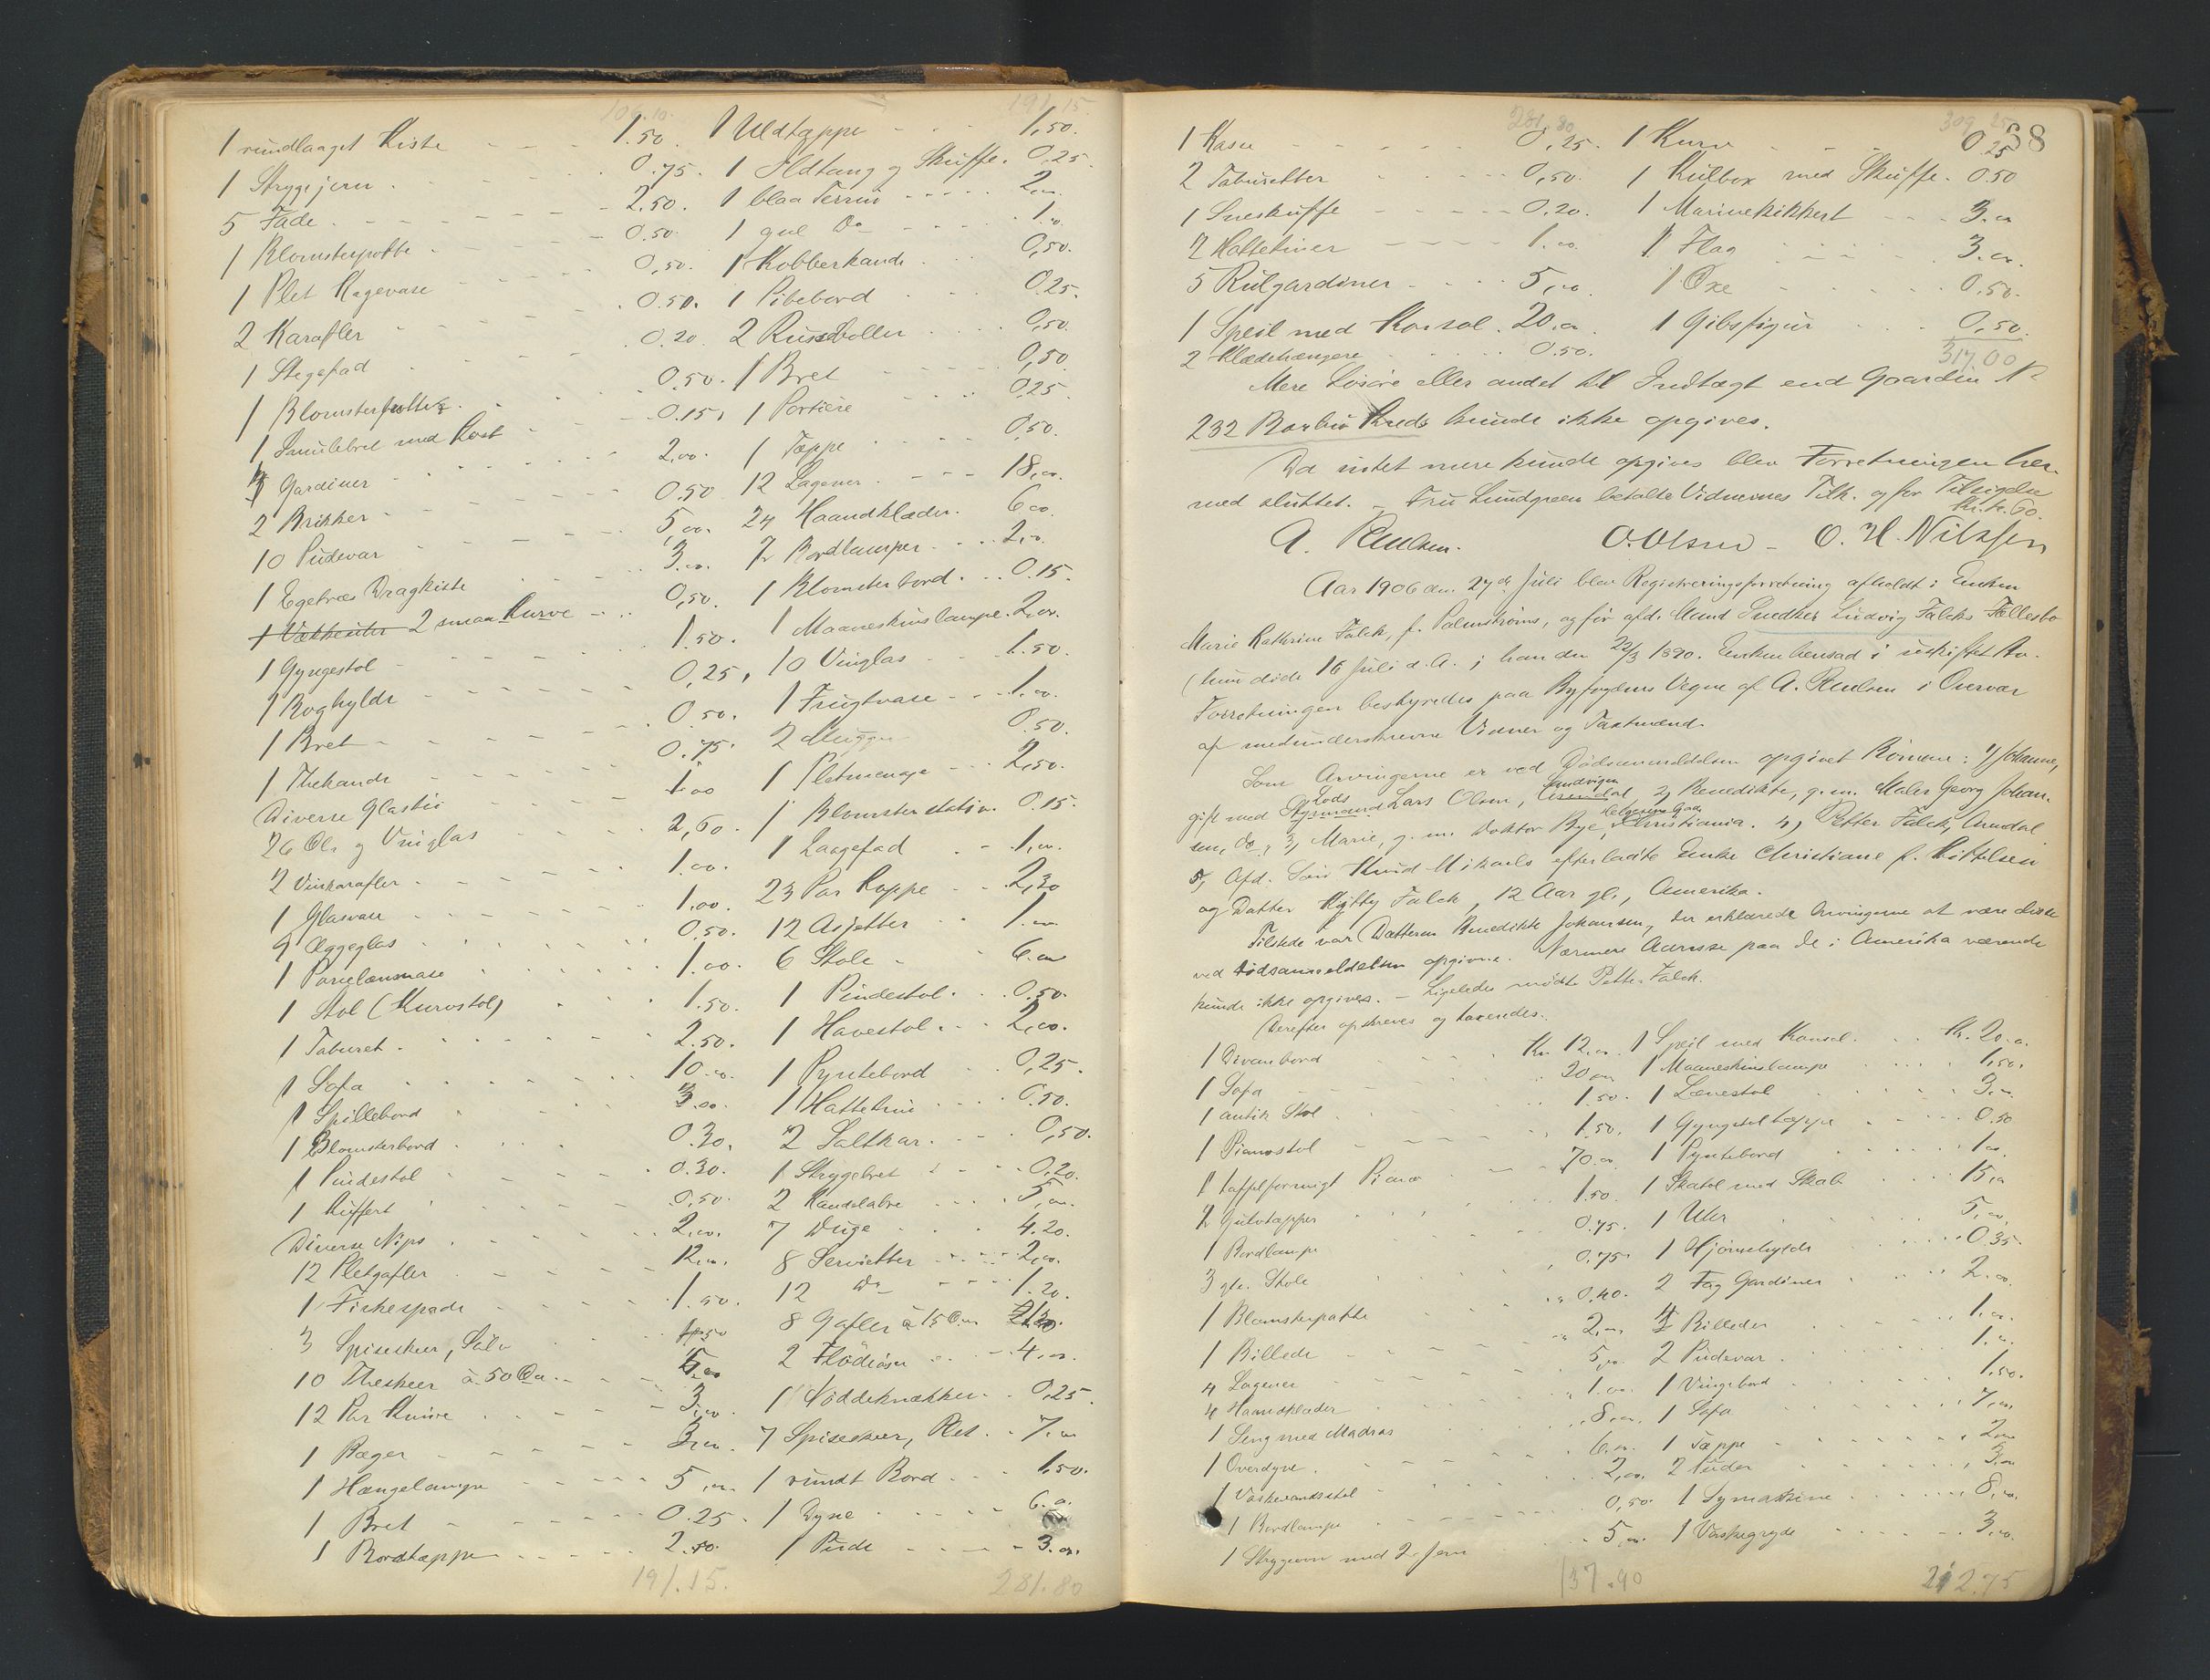 106.10.
1 rundlaaget Kiste 1.50.
1 Strygejern 0.75.
5 Fade 2.50.
1 Blomsterpotte 0.50.
1 Plet Kagevase 0,50.
2 Karafler 0.50.
1 Stegefad 0.20
1 Blomsterpotte 0.50.
1 Smulebret med Kost 0.15,
Gardiner 2,00.
2 Brikker 0.50
10 Pudevar 5,00.
1 Egetræs Dragkiste 3.00.
2 smaa Kurve 0,50.
1 Gyngestol 1.50.
1 Boghylde 0,25,
1 Bret 0.50.
1 Thekande 0.75.
Diverse Glastøi 1.00
26 Øl og Vinglas 2,60.
2 Vinkarafler 1.00.
1 Glasvase 1.00.
9 Æggeglas 0.50.
1 Porselænsvase 1.00.
1 Stol (Kurvstol) 1.50.
1 Taburet 2.50.
1 Sofa 10.00.
1 Spillebord 3.00.
1 Blomsterbord 0.30.
1 Pindestol 0.30.
1 Kuffert 0,50.
Diverse Nips 2,00.
12 Pletgafler 12,00.
1 Fiskespade 1.50.
3 Spiseskeer, Sølv
10 Theskeer à 50 Øre 5,00
12 Par Knive 3,00.
1 Bæger 3,00.
1 Hængelampe 5,00.
1 Bret 0.25.
1 Bordtæppe 2.50.
191.15.
191.15
1 Uldtæppe 1,50.
1 Ildtang og Skuffe. 0,25.
1 blaa Terrin 2,00.
1 gul Do 1.00
1 Kobberkande 0,50.
1 Pibebord 0.25.
2 Punsboller 0,50.
1 Bret 0,50
1 Portiere 0.25
1 Tæppe 0.50.
12 Lagener 18,00.
24 Haandklæder. 6.00.
2 Bordlamper 2,00.
1 Blomsterbord. 0.15.
1 Maaneskinslampe. 2,00.
10 Vinglas 1.50.
1 Frugtvase 1.00.
2 Mugger 0.50.
1 Pletmenage 2,50.
1 Blomsterstativ. 0.15.
1 Laagefad 1,00.
23 Par Koppe 2,30
12 Asjetter 1.00
6 Stole 6.00
1 Pindestol. 0.50.
1 Havestol. 2,00.
1 Pyntebord 0,25.
1 Hattetine 0.50.
2 Saltkar. 0,50.
1 Strygebret 0,20.
2 Kandelabre 5,00.
7 Duge 4.20.
8 Servietter 2,00.
12 Do 1.20.
8 Gafler à 15 Øre
2 Flødeøser 4,00.
1 Nøddeknækker 0,25.
7 Spiseskeer, Plet. 7.00
1 rundt Bord 1,50.
1 Dyne 6.00.
1 Pude 3.00.
281.80
68
281.80
1 Kasse 0,25.
2 Taburetter 0,50.
1 Sneskuffe 0.20.
2 Hattetiner 1.00.
5 Rulgardiner 5,00.
1 Speil med Konsol. 20.00.
2 Klædehængere 0.50.
309.25
1 Kurv 0.25
1 Kulbox med Skuffe. 0.50
1 Marinekikkert 3.00
1 Flag 3.00.
1 Øxe 0.50.
1 Gibsfigur 0,50.
317.00
Mere Løsøre eller andet til Indtægt end Gaarden No
232 Barbu Kreds kunde ikke opgives.
Da intet mere kunde opgives blev Forretningen her-
med sluttet. - Fru Lundgreen betalte Vidnernes Tilk. og for Tilsigelse
A. Paulsen. O. Olsen - O. H. Nilssen
Aar 1906 den 27de Juli blev Registreringsforretning afholdt i Enken
Marie Kathrine Falck, f. Palmstrøms, og før afd. Mand Snedker Ludvig Falcks Fællesbo
(hun døde 16 Juli d. A. ; han den 22/3 1890. Enken hensad i uskiftet Bo.
Forretningen bestyredes paa Byfogdens Vegne af A. Paulsen i Overvær
af medunderskrevne Vidner og Taxtmænd.
Som Arvingerne er ved Dødsanmeldelsen opgivet Konen: 1) Johanne,
gift med Styrmand Lods Lars Olsen, Arendal Sandvigen 2) Benedikte, g. m. Maler Georg Johan-
sen, do, 3, Marie, g. m. Doktor Bye, Christiania. 4) Petter Falck, Arendal
5, Afd. Søn Knud Mikaels efterladte Enke Christiane f. Kittelsen
og Datter Kitty Falck, 12 Aar gl., Amerika.
Tilstede var Datteren Benedikte Johansen, der erklærede Arvingerne at være disse
ved Dødsanmeldelsen opgivne. Nærmere Adresse paa de i Amerika værende
kunde ikke opgives. - Ligeledes mødte Petter Falck.
Derefter opskreves og taxeredes.
1 Divanbord Kr. 12.00.
1 Sofa 20.00
1 antik Stol 1.50.
1 Pianostol 1.50.
1 taffelformigt Piano 70.00.
2 Gulvtæpper 1.50.
1 Bordlampe 0.75.
3 gle. Stole 0.75.
1 Blomsterpotte 0.40.
1 Billede 2,00.
4 Lagener 5,00.
4 Haandklæder 1.00.
1 Seng med Madras 8,00.
1 Overdyne 6.00.
1 Vaskevandsstel 2,00.
1 Bordlampe 0,50.
1 Strygeovn med 2 Jern 5,00.
137.90
1 Speil med Konsol. Kr. 20.00.
1 Maaneskinslampe 1,50.
1 Lænestol 3,00.
1 Gyngestoltæppe 0.50
1 Pyntebord 1.00.
1 Skatol med Skab 15,00
1 Uhr 5,00.
1 Hjørnehylde 0.35.
2 Fag Gardiner 2.00.
Billeder 1.00.
2 Pudevar 1.00.
1 Vingebord 1,50.
1 Sofa 7,00.
1 Tæppe 2,00
2 Puder 3,00
1 Symaskine 8,00.
1 Vaskegryde 3,00.
212.75